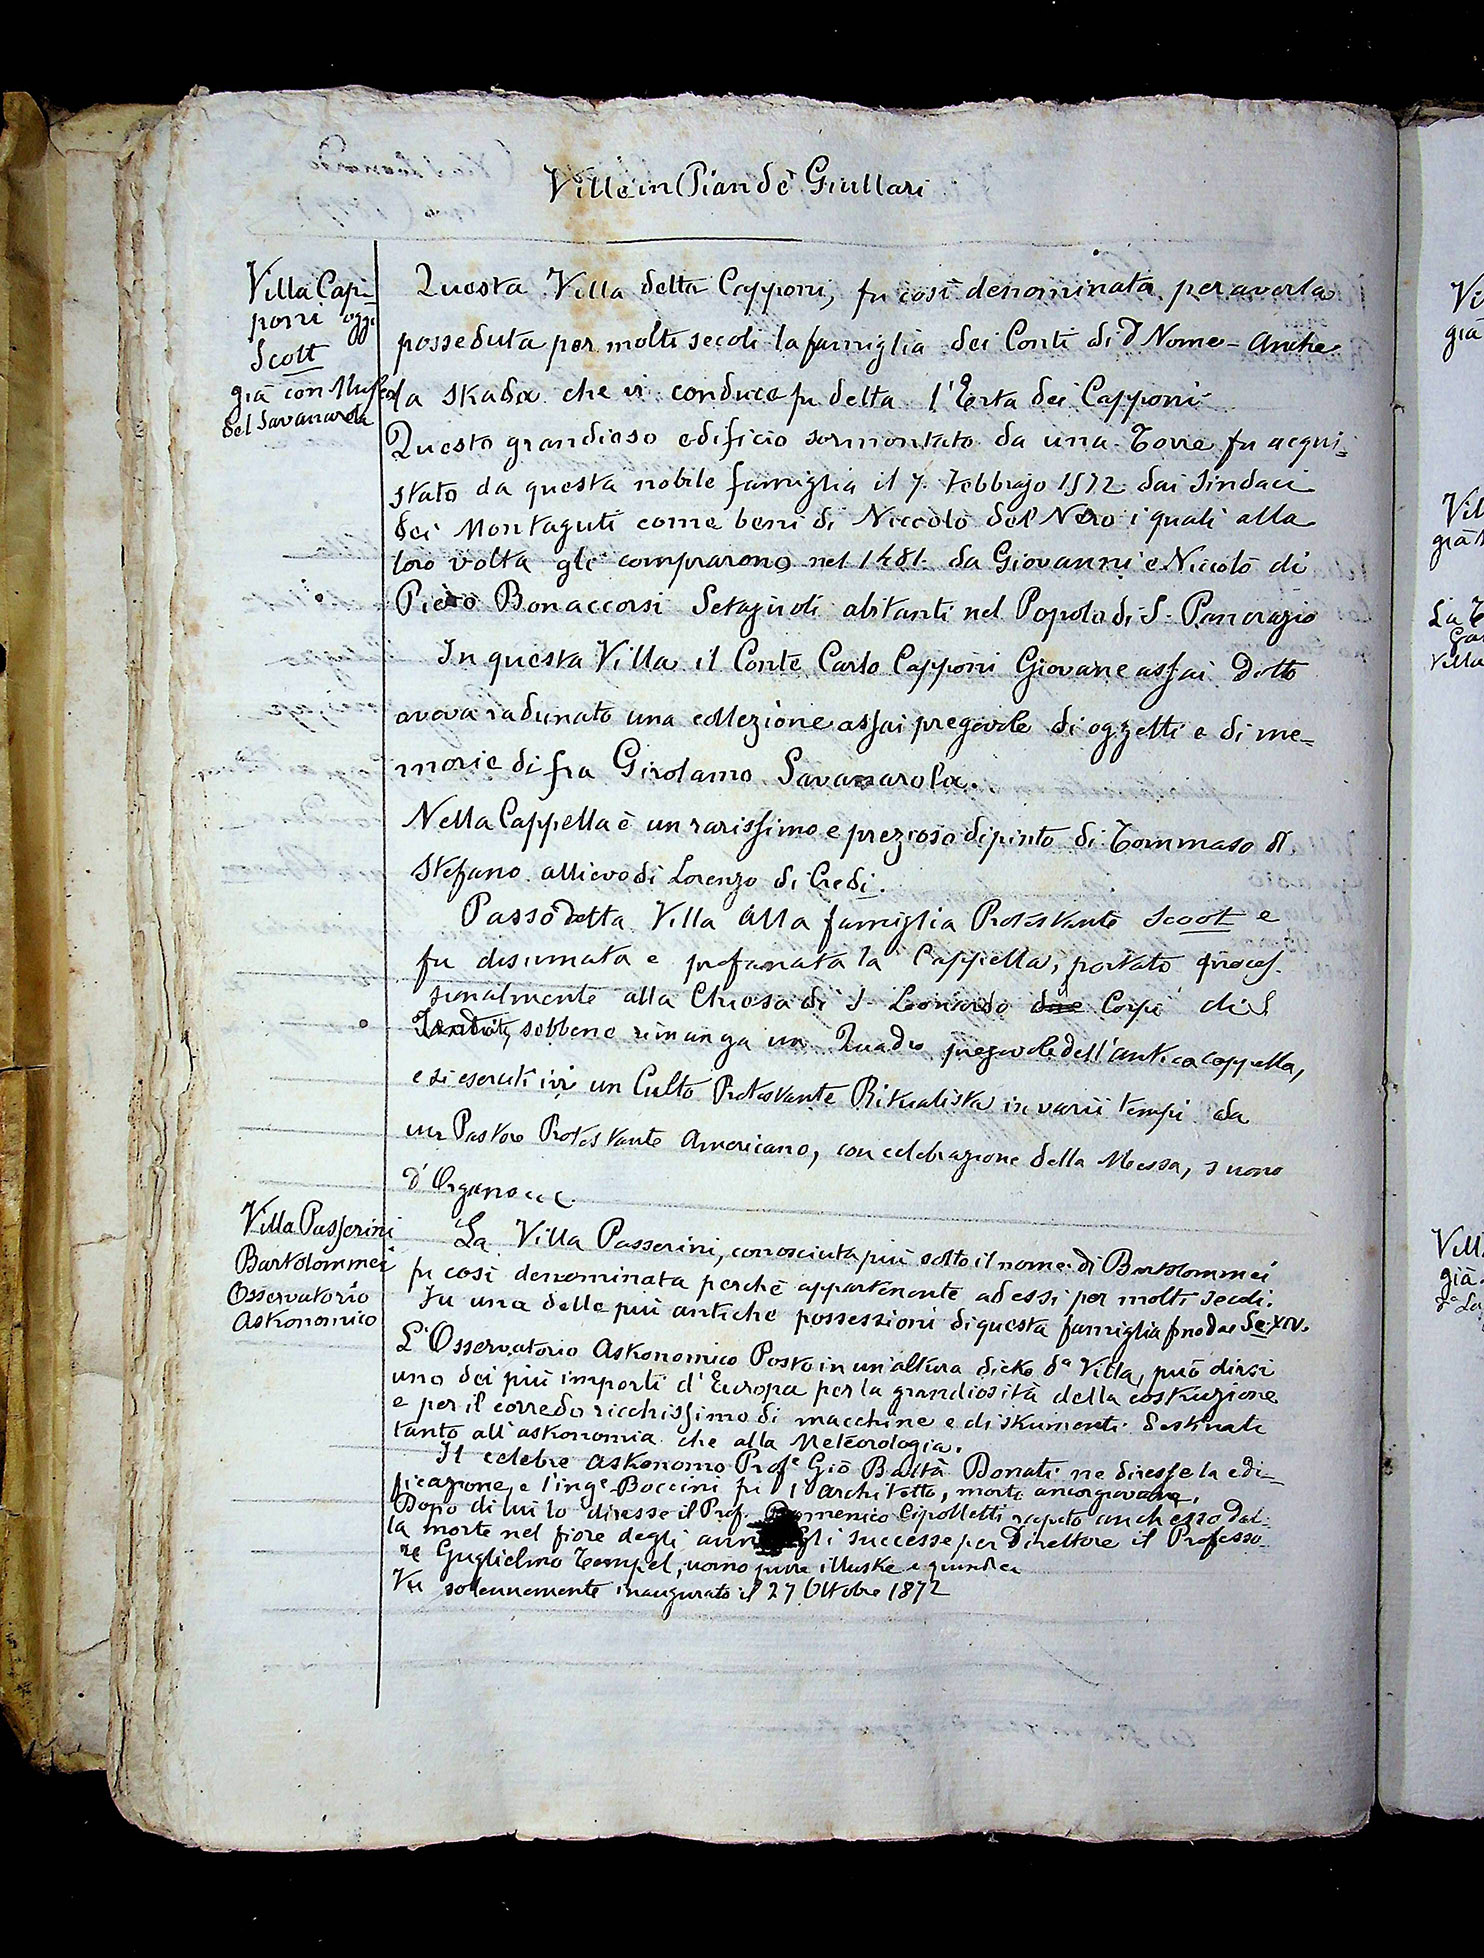 Ville in Pian de' Giullari
Villa Cap-
poni oggi
Scott
già con Museo
del Savanarola
Questa Villa detta Capponi, fu così denominata per averla
posseduta per molti secoli la famiglia dei Conti di d Nome - Anche
la strada che vi conduce fu detta l'Erta dei Capponi
Questo grandioso edificio sormontato da una Torre fu acqui-
stato da questa nobile famiglia il 7. Febbrajo 1572 dai Sindaci
dei Montaguti come beni di Niccolò del Nero i quali alla
loro volta gli comprarono nel 1481. da Giovanni e Niccolò di
Piero Bonaccorsi Setajuoli abitanti nel Popolo di S. Pancrazio
In questa Villa il Conte Carlo Capponi Giovane assai Dotto
aveva radunato una collezione assai pregevole di oggetti e di me-
morie di fra Girolamo Savanarola.
Nella Cappella è un rarissimo e prezioso dipinto di Tommaso di
Stefano allievo di Lorenzo di Credi.
Passò detta Villa alla famiglia Protestante Scoot e
fu disumata e profanata la Cappella, portato proces-
sionalmente alla Chiesa di S Leonardo Corpi di S
sebbene rimanga un Quadro pregevole dell'antica Cappella,
e si eserciti ivi un Culto Protestante Ritualista in varii tempi da
un Pastore Protestante Americano, con celebrazione della Messa, suono
d'Organo ecc.
Villa Passerini
Bartolommei
Osservatorio
Astronomico
La Villa Passerini, conosciuta più sotto il nome di Bartolommei
fu così denominata perchè appartenente ad essi per molti secoli.
Fu una delle più antiche possessioni di questa famiglia fino dal Se. XIV.
L'Osservatorio Astronomico Posto in un'altura dietro da Villa, può dirsi
uno dei più importi d'Europa per la grandiosità della costruzione
e per il corredo ricchissimo di macchine e di strumenti destinati
tanto all'astronomia che alla Meteorologia.
Il celebre Astronomo Profe Gio Batta Donati ne diresse la edi-
ficazione, e l'inge Boccini fu l'Architetto, morti ancor giovane.
Dopo di lui lo diresse il Prof. Domenico Cipolletti rapito anch esso dal-
la morte nel fiore degli anni gli successe per Direttore il Professo-
re Guglielmo Tempel, uomo pure illustre
Fu solennemente inaugurato il 27 Ottobre 1872
Vi
già
Vil
già
La T
Villa
Vill
già